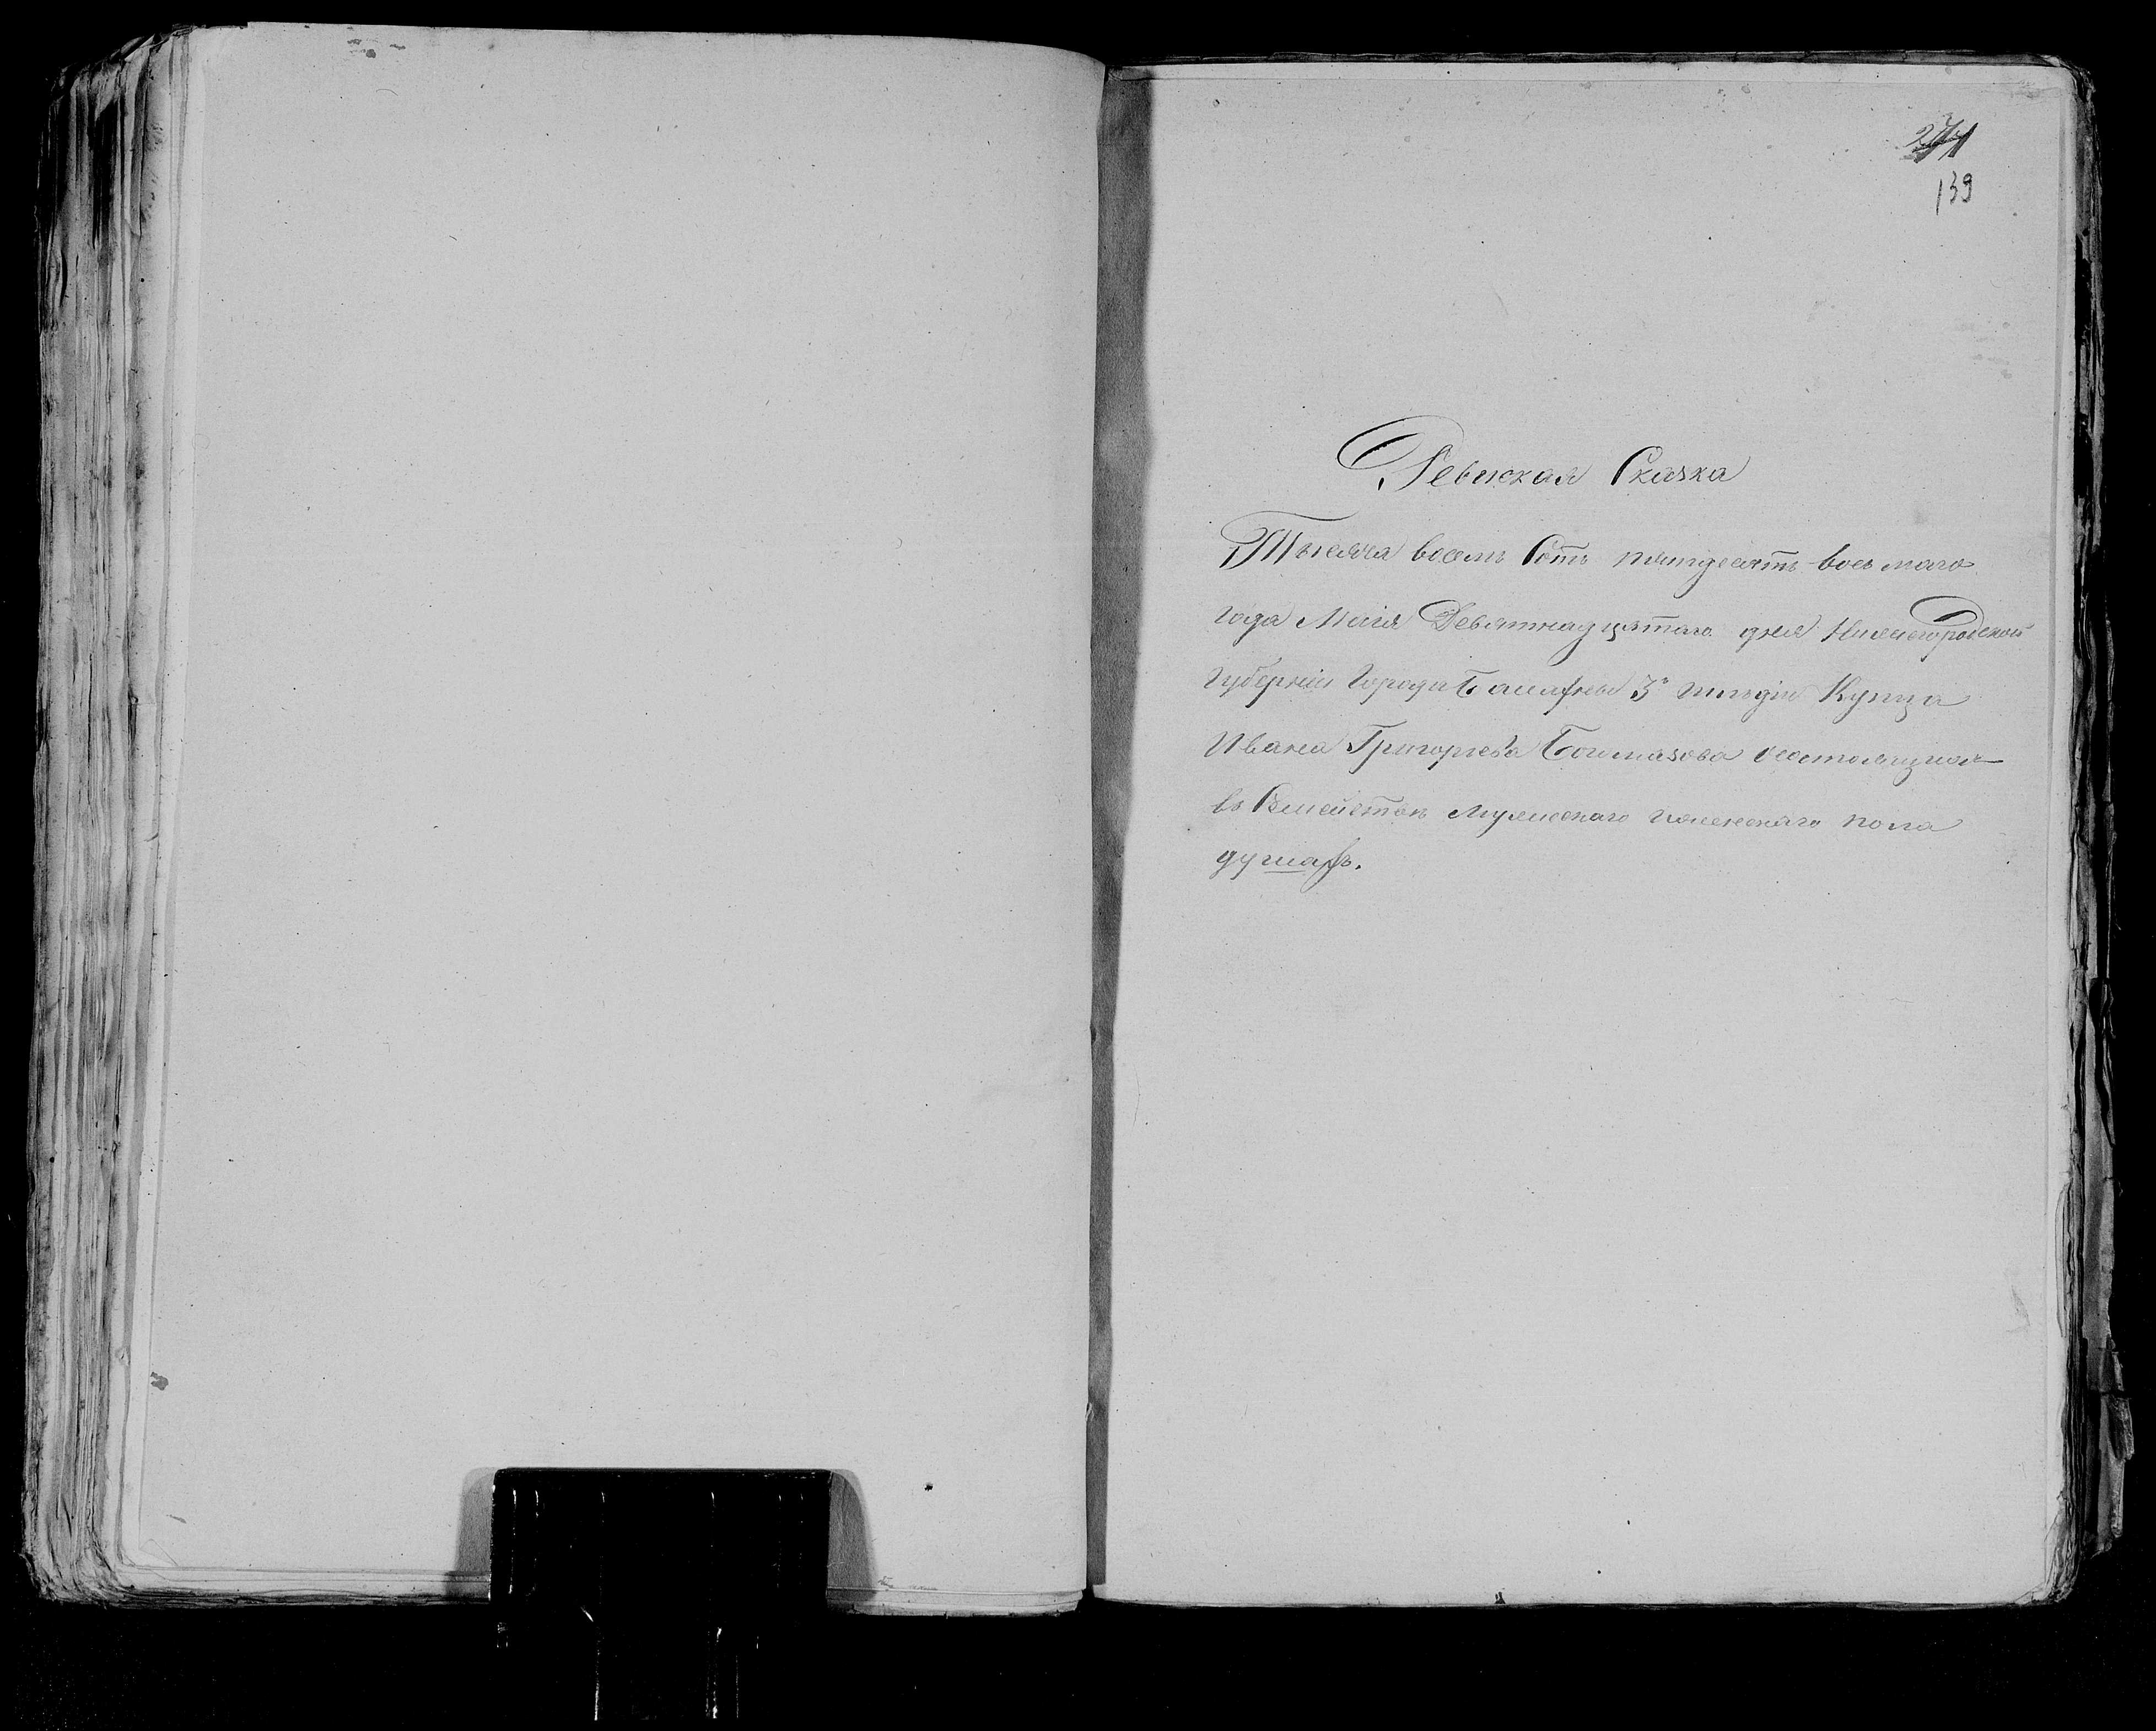 271
139
Ревиская Сказка
Тысяча восемь Сотъ пятдесятъ восьмаго
года Маія Девятнадцятаго дня Нижегородской
Губерніи Города Балахны 3й гильдіи Купца
Ивана Григорьева Богомазова о состоящихъ
въ Семействѣ мужескаго и женскаго пола
душахъ.